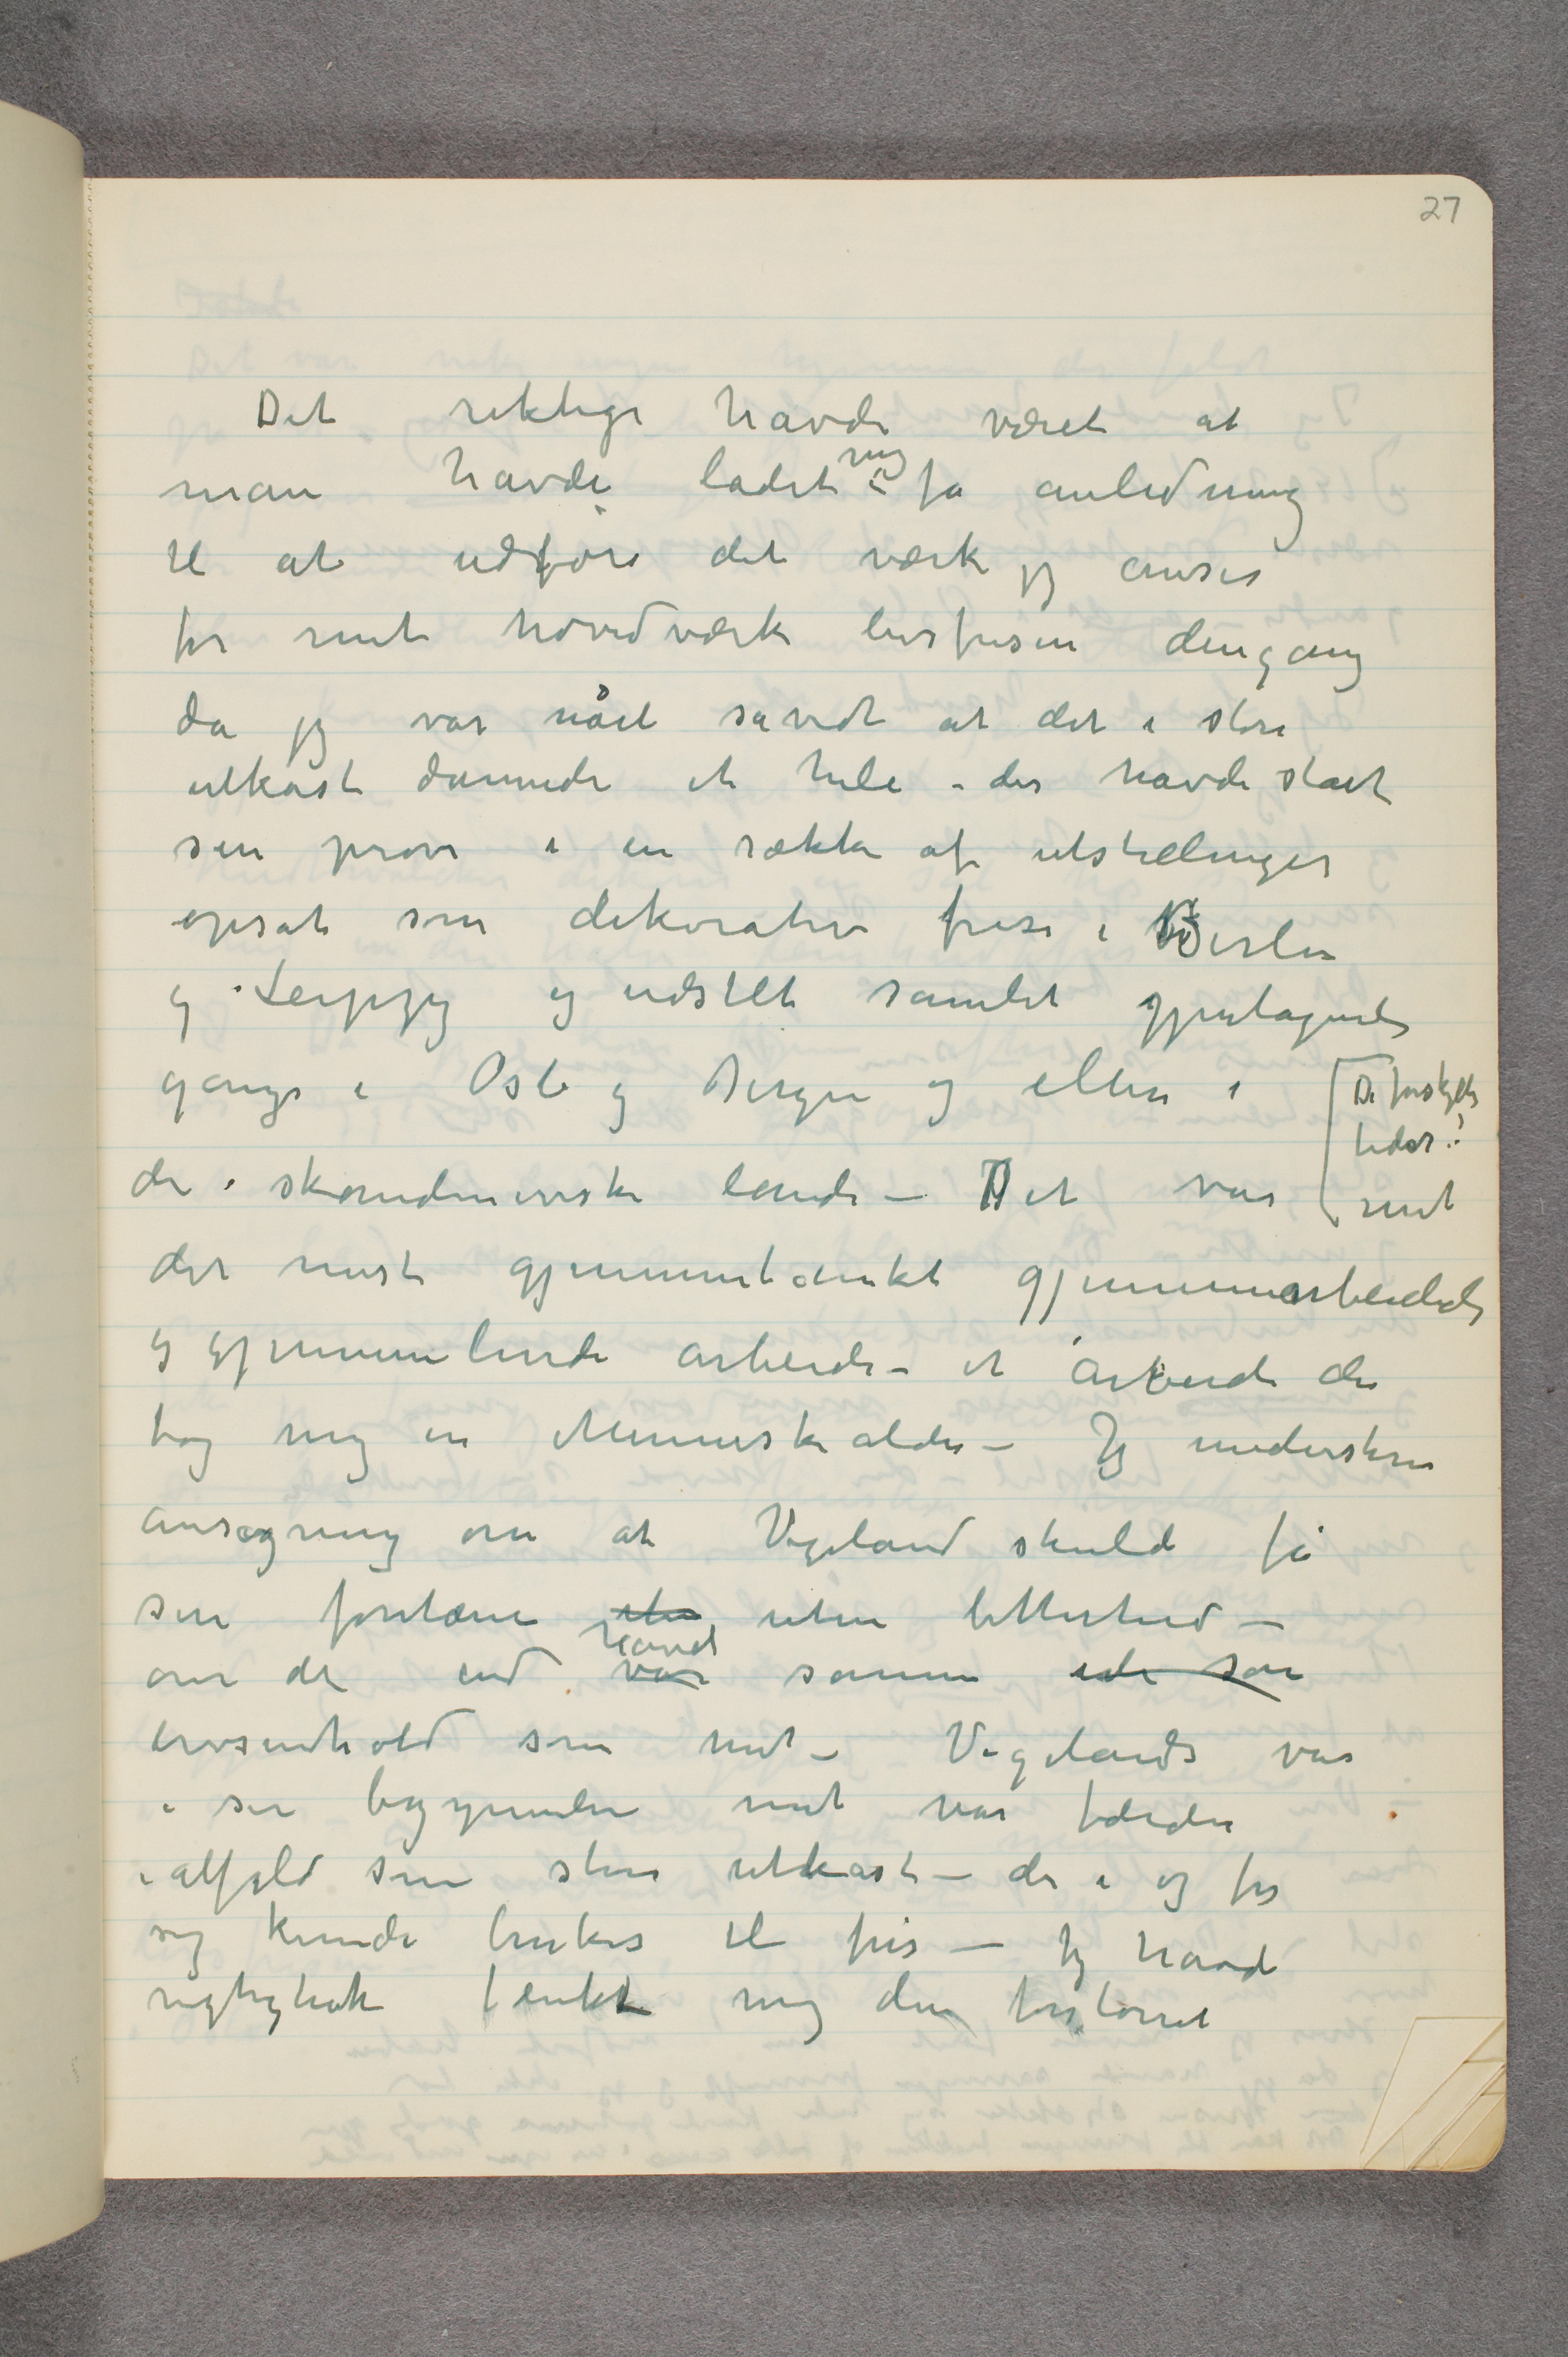 27
Det rektige havde været at
man havde ladet mig få anledning
til at udføre det værk jeg anser
for mit hovedværk livsfrisen dengang
da jeg var nået såvidt at det i store
utkast dannede et hele – der havde stået
sin prøve i en række af utstillinger
opsat som dekorativ frise i Berlin
og Leipzig og udstilt samlet gjentagende
gange i Oslo og Bergen og ellers i
de skandinaviske lande – Det var
De forskjellige
tider!
mit
det mest gjennemtænkt gjennemarbeidede
og gjennemlevede arbeide – et arbeide der
tog mig en Menneskealder – Jeg underskrev
ansøgning om at Vigeland skulde få
sin fontæne uten bitterhed –
om det end havde var samme ide som
livsindhold som mit – Vigelands var
i sin begynnelse mit var færdig
i alfald som store utkast – der i og for
sig kunde brukes til fris – Jeg havde
rigtignok tenkt mig den forstørret